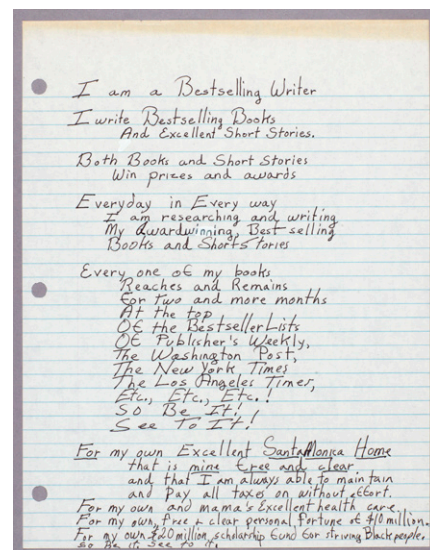 I am a Bestselling Writer
I write Bestselling Books
And Excellent Short Stories.
Both Books and Short Stories
Win prizes and awards
Everyday in Every way
I am researching and writing
My Awardwinning, Best selling
Books and Short Stories
Every one of my books
Reaches and Remains
for two and more months
At the top
Of the Bestseller Lists
Of Publisher's Weekly,
The Washington Post,
The New York, Times
The Los Angeles Times,
Etc., Etc., Etc.!
So Be It!
See To It!
For my own Excellent Santa Monica Home
that is mine free and clear
and that I am always able to maintain
and Pay all taxes on without effort.
For my own and mama's Excellent health care.
For my own, free + clear personal fortune of $10 million.
For my own $20 million scholarship fund for striving Black people.
So Be it, See to it.